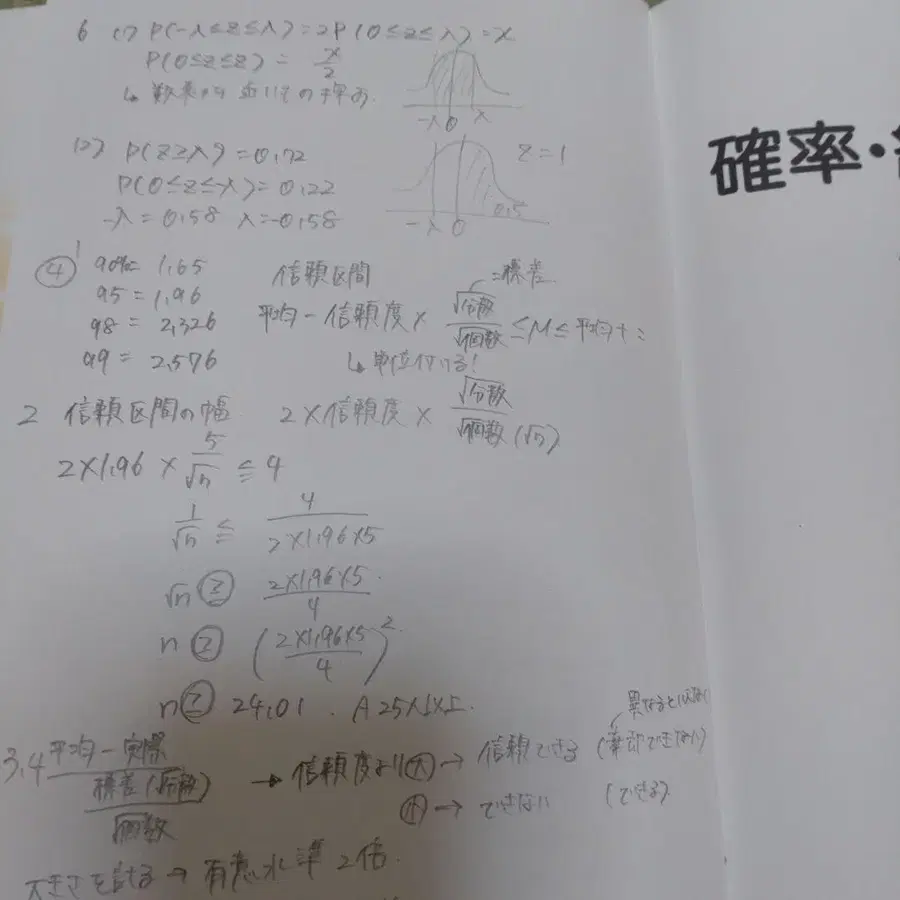 6 (1) P(-λ≦z≦λ)=2P(0≦z≦λ)=x
P(0≦z≦z)= x/2
↳ 数表から近いもの
-λ 0 λ
(2) P(z≧λ)=0,72
z=1
P(0≦z≦-λ)=0,22
0,5
-λ=0,58 λ=-0,58
-λ 0
確率・
④ 1 90%=1,65
95=1,96
98=2,326
99=2,576
信頼区間
=標差
平均-信頼度×√分散/√個数≦M≦平均+:
↳単位付ける!
2 信頼区間の幅 2×信頼度×√分散/√個数(√n)
2×1,96×5/√n≦4
1/√n≦4/2×1,96×5
√n≧2×1,96×5/4
n≧(2×1,96×5/4)²
n≧24,01. A 25以上.
3,4 平均-実際/標差(√分散)/√個数
→信頼度より大→信頼できる(棄却できない)
小→できない(できる)
大きさを計る→有意水準2倍.